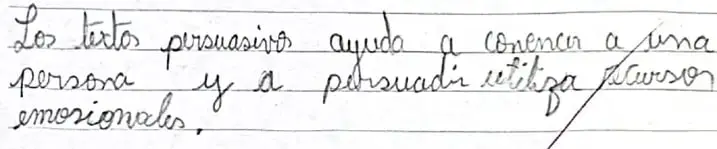 Los textos persuasivos ayuda a conencer a una
persona y a persuadir utiliza recursos
emosionales.